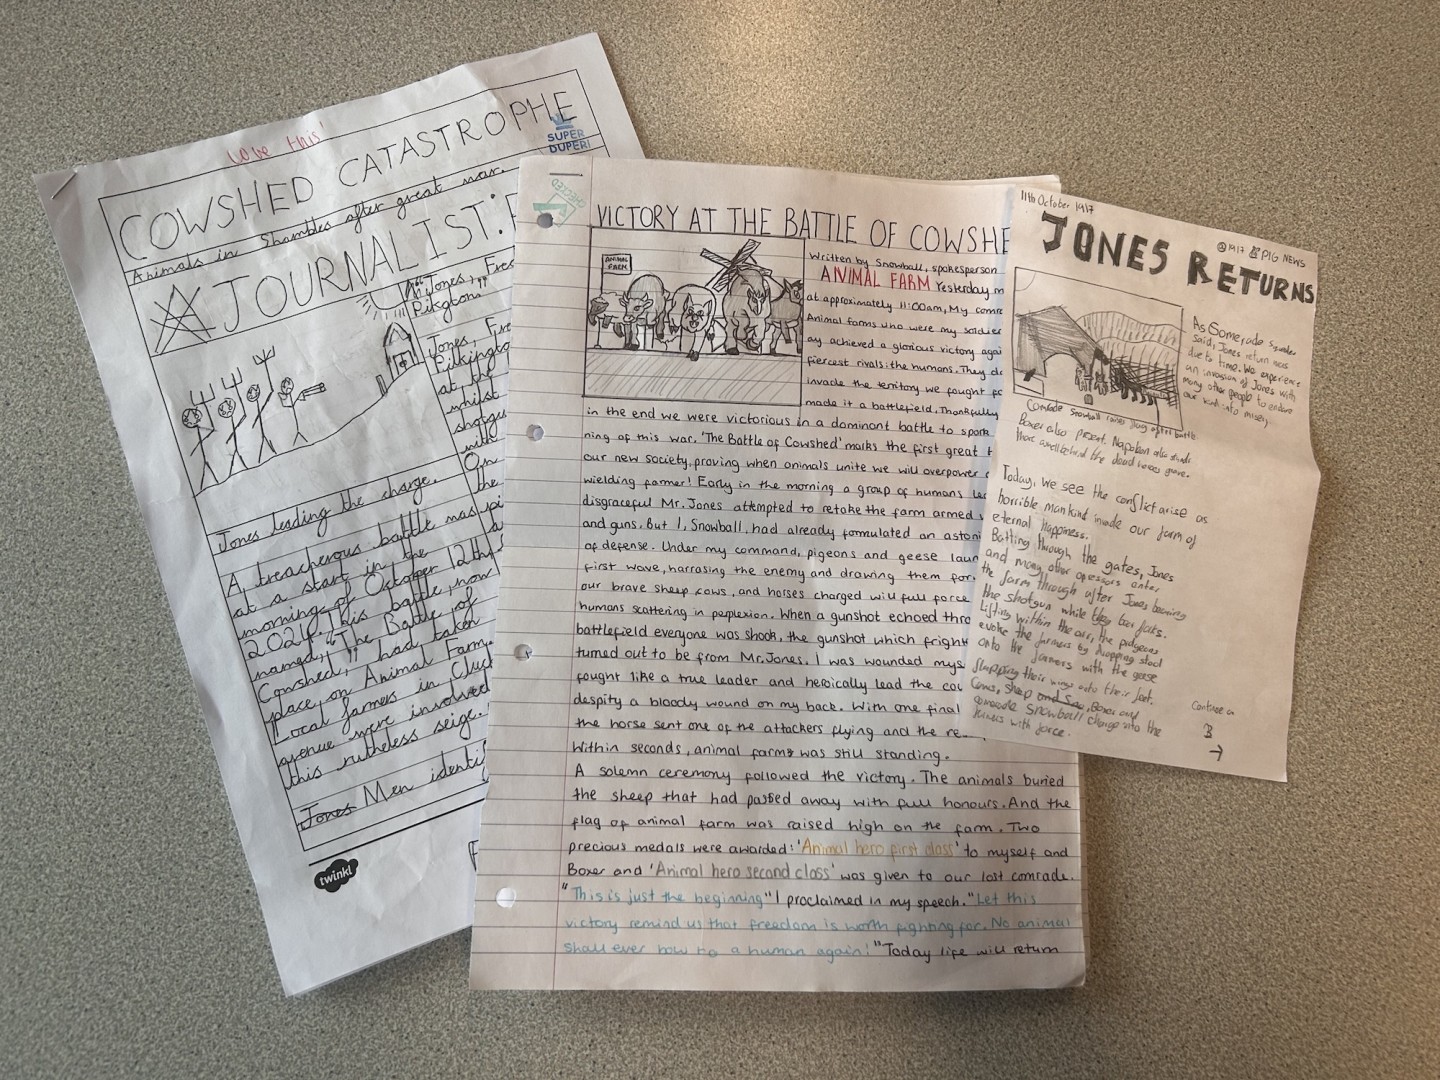 Love this!
COWSHED CATASTROPHE
SUPER
DUPER!
Animals in Shambles after great war.
JOURNALIST:
"Jones, Fre
Pilkington"
Jones, Fre
Pilkingto
at the
whilst
shotgu
with
On
the
Jones leading the charge.
A treacherous battle was
at a start in the
morning of October 12th
2024. This battle, now
named, "The Battle of
Cowshed," had taken
place on Animal Farm.
Local farmers in Cluck
avenue were involved
this ruthless seige.
Jones Men identi
twinkl
CHECKED
VICTORY AT THE BATTLE OF COWSHE
ANIMAL
FARM
Written by Snowball, spokesperson
ANIMAL FARM Yesterday m
at approximately 11:00am, My comr
Animal farms who were my soldier
ay achieved a glorious victory agai
fiercest rivals: the humans. They d
invade the territory we fought fo
made it a battlefield. Thankfully
in the end we were victorious in a dominant battle to spark
ning of this war. 'The Battle of Cowshed' marks the first great
our new society, proving when animals unite we will overpower
wielding farmer! Early in the morning a group of humans led
disgraceful Mr. Jones attempted to retake the farm armed
and guns. But I, Snowball, had already formulated an astoni
of defense. Under my command, pigeons and geese laun
first wave, harrasing the enemy and drawing them for
our brave sheep cows, and horses charged will full force
humans scattering in perplexion. When a gunshot echoed thro
battlefield everyone was shook, the gunshot which fright
turned out to be from Mr. Jones. I was wounded mys
fought like a true leader and heroically lead the cou
despity a bloody wound on my back. With one final
the horse sent one of the attackers flying and the re
Within seconds, animal farm was still standing.
A solemn ceremony followed the victory. The animals buried
the sheep that had passed away with full honours. And the
flag of animal farm was raised high on the farm. Two
precious medals were awarded: 'Animal hero first class' to myself and
Boxer and 'Animal hero second class' was given to our lost comrade.
"This is just the beginning" I proclaimed in my speech. "Let this
victory remind us that freedom is worth fighting for. No animal
shall ever bow to a human again!" Today life will return
11th October 1917
JONES RETURNS
©1917 PIG NEWS
As Some, ade
said, Jones return was
due to time. We experience
an invasion of Jones with
many other people to endure
our kind into misery.
Comrade Snowball raises flag after battle.
Boxer also present. Napoleon also stands
there well behind the dead
grave.
Today, we see the conflict arise as
horrible mankind invade our farm of
eternal happiness.
Batting through the gates, Jones
and many other opressors enter
the farm through after Jones
the shotgun while
Lifting within the air, the pidgeons
evoke the farmers by dropping stool
onto the farmers with the geese
slapping their wings onto their feet.
Cows, sheep and Sno, Boxer and
comrade SNOWBALL charge into the
farmers with force.
Continue on
3
→